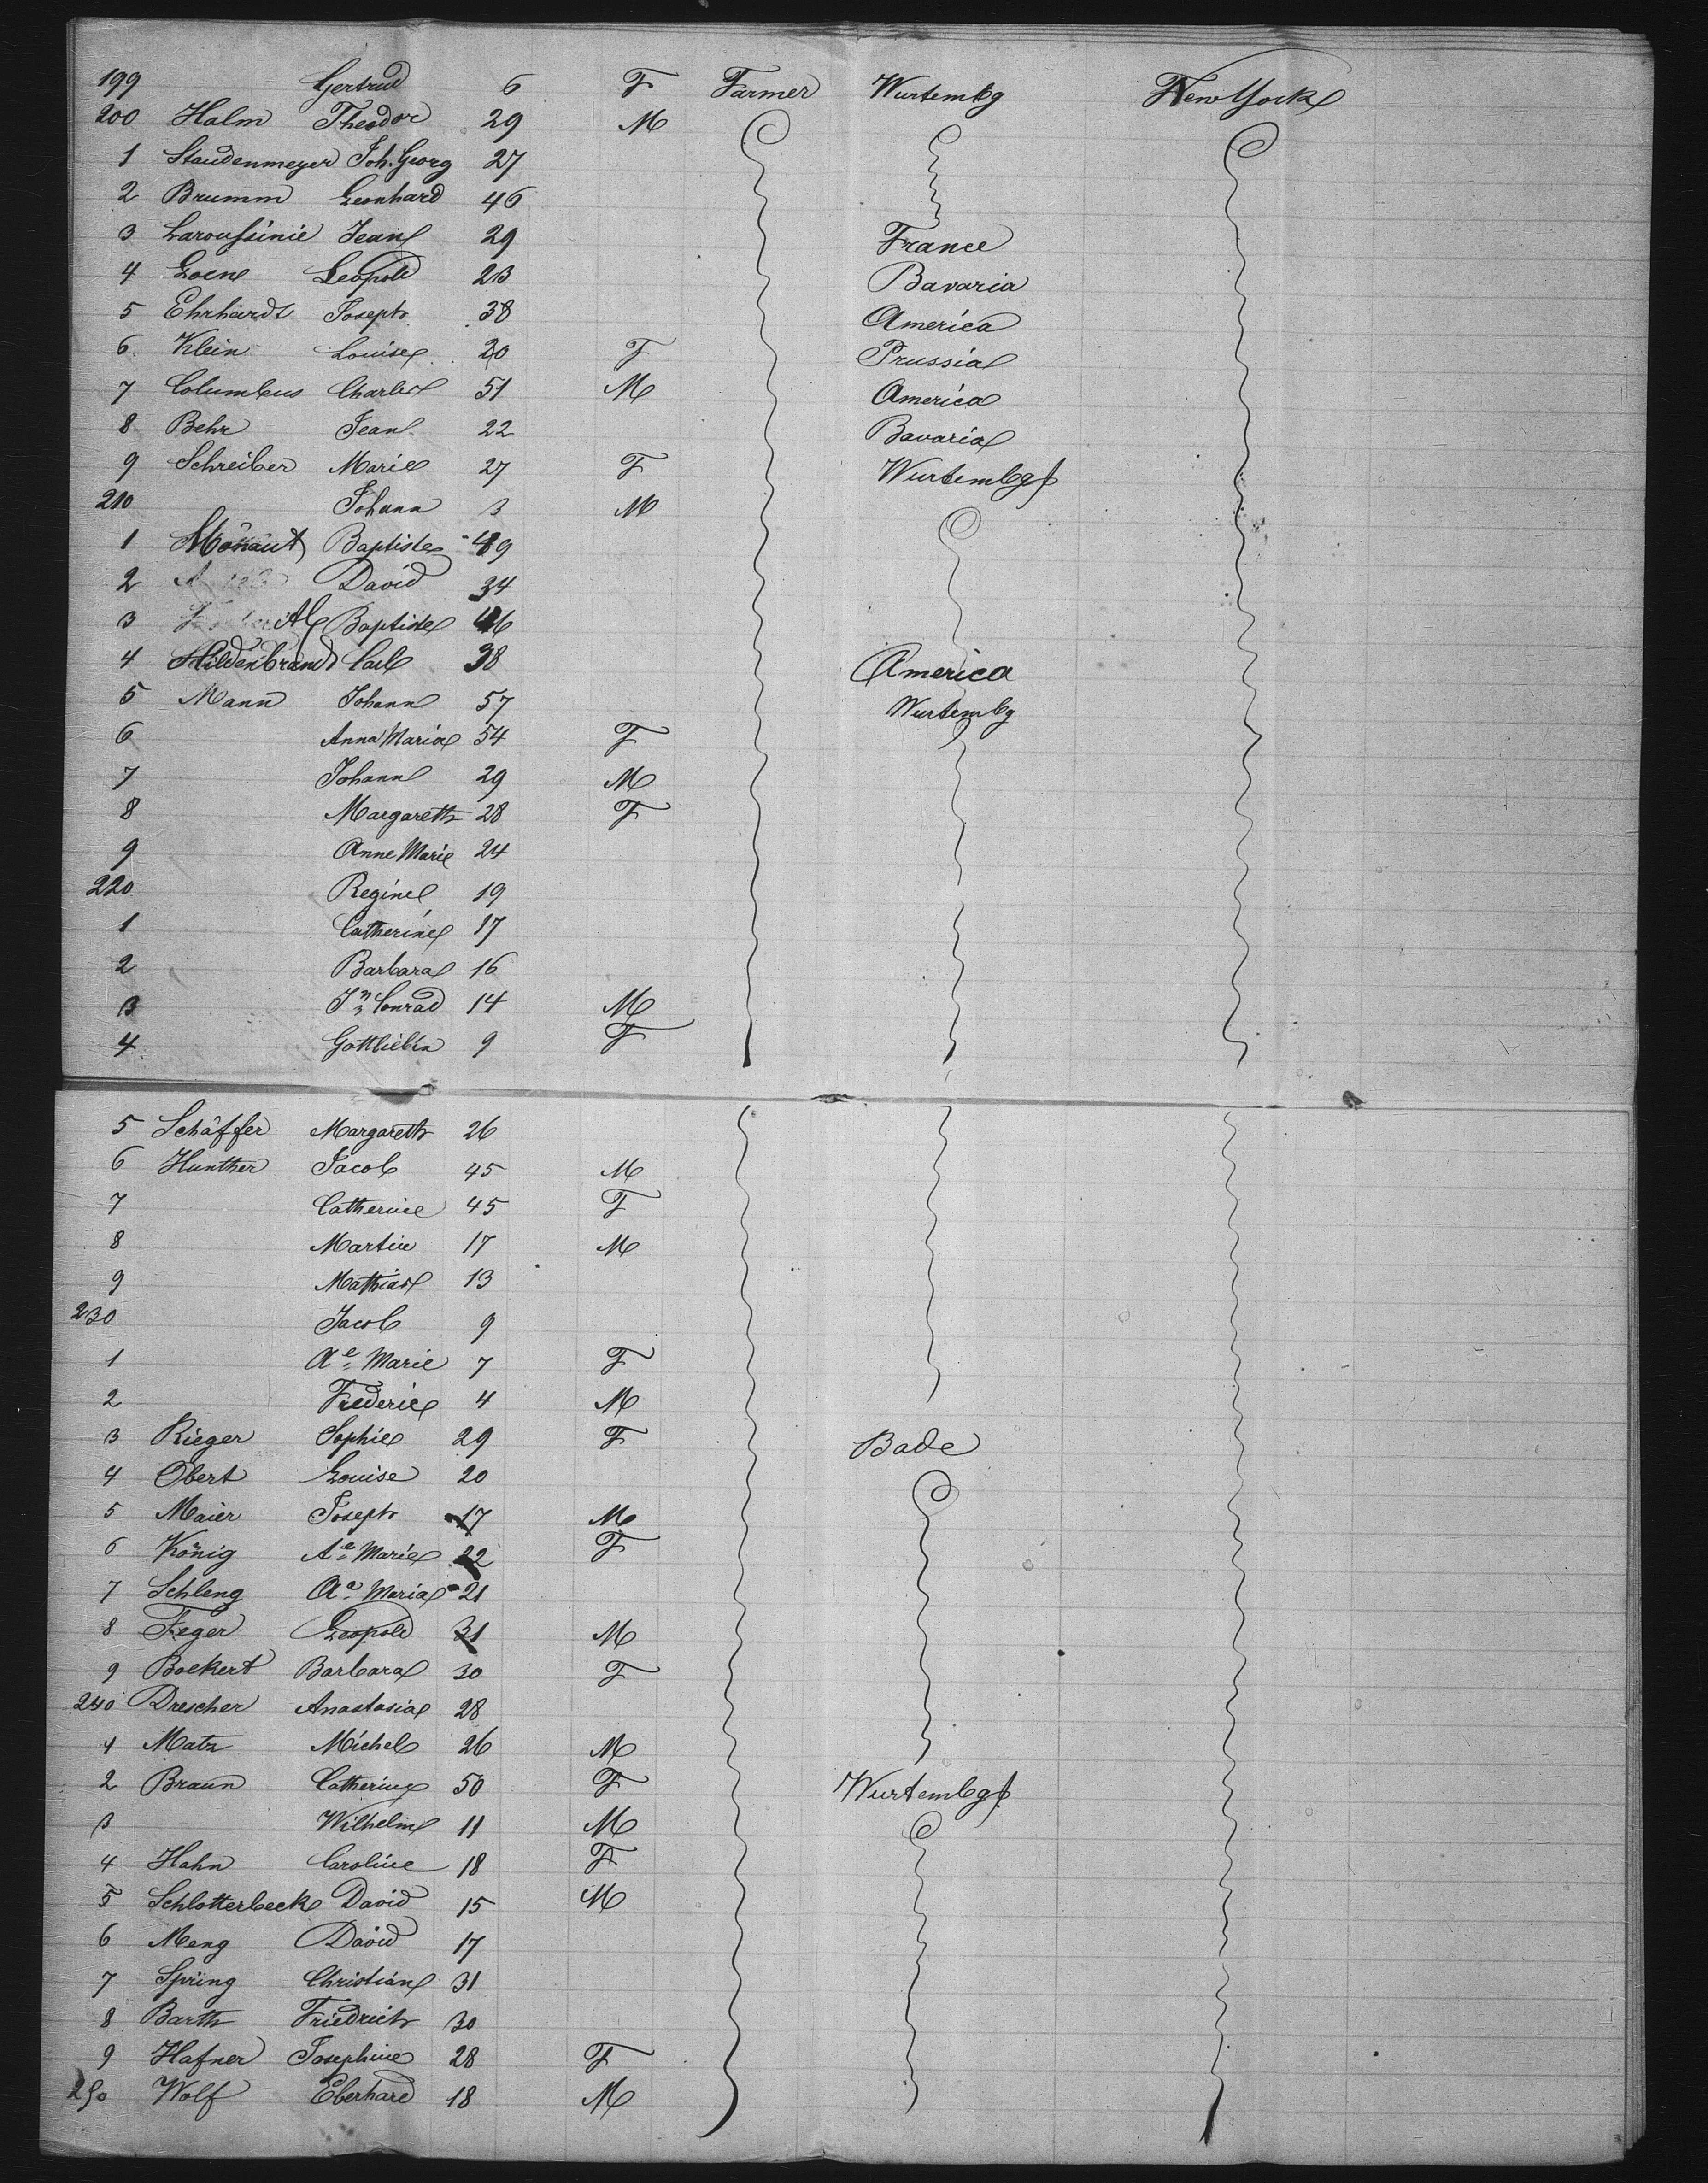 199 Gertrud 6 F Farmer Wurtembg NewYork
200 Halm Theodor 29 M
1 Staudenmeyer Joh. Georg 27
2 Brumm Leonhard 46
3 Laroussinie Jean 29 France
4 Leopold 23 Bavaria
5 Ehrhardt Joseph 38 America
6 Klein Louise 20 F Prussia
7 Columbus Charles 51 M America
8 Behr Jean 22 Bavaria
9 Schreiber Marie 27 F Wurtembg
210 Johann 3 M
1 Baptiste 49
2 David 34
3 Baptiste 46
4 Hildenbrand Carl 38 America
5 Mann Johann 57 Wurtembg
6 Anna Maria 54 F
7 Johann 29 M
8 Margareth 28 F
9 Anne Marie 24
220 Regine 19
1 Catherine 17
2 Barbara 16
3 Jn Conrad 14 M
4 Gottliebin 9 F
5 Schäffer Margareth 26
6 Hunther Jacob 45 M
7 Catherine 45 F
8 Martin 17 M
9 Mathias 13
230 Jacob 9
1 Ae Marie 7 F
2 Frederic 4 M
3 Rieger Sophie 29 F Bade
4 Obert Louise 20
5 Maier Joseph 17 M
6 König Ae Marie 22 F
7 Schleng Aa Maria 21
8 Feger Leopold 31 M
9 Bockert Barbara 30 F
240 Drescher Anastasia 28
1 Matz Michel 26 M
2 Braun Catherine 50 F Wurtembg
3 Wilhelm 11 M
4 Hahn Caroline 18 F
5 Schlotterbeck David 15 M
6 Meng David 17
7 Spring Christian 31
8 Barth Friedrich 30
9 Hafner Josephine 28 F
250 Wolf Eberhard 18 M